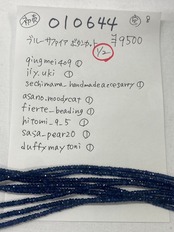 010644 8
ブルーサファイア ボタンカット ¥9500
1/2
qingmei409 ①
jly.uki ①
sechimama_handmadeaccesaary ①
asano.moodycat ①
fierte_beading ①
hitomi_9_5 ①
sasa_pear20 ①
duffymaytoni ①